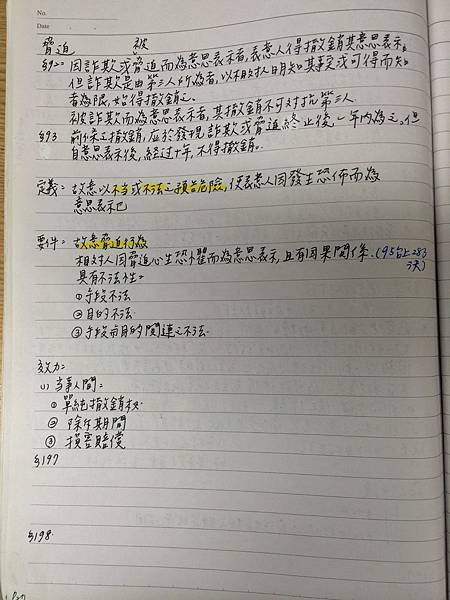 No.
Date
脅迫 被
§92 因詐欺或脅迫而為意思表示者,表意人得撤銷其意思表示。
但詐欺是由第三人所為者,以相對人明知其事實或可得而知
者為限,始得撤銷之。
被詐欺而為意思表示者,其撤銷不可對抗第三人.
§93 前條之撤銷,應於發現詐欺或脅迫終止後一年內為之,但
自意思表示後,經过十年,不得撤銷.
定義:故意以不当或不法之損害危險,使表意人因發生恐佈而為
意思表示也
要件:故意脅迫行為
相对人因脅迫心生恐懼而為意思表示,且有因果関係.(95台上283
決)
具有不法性:
①手段不法
②目的不法
③手段与目的関連之不法.
効力:
(1)当事人間:
①單純撤銷权
② 除斥期間
③ 損害賠償
§197
§198